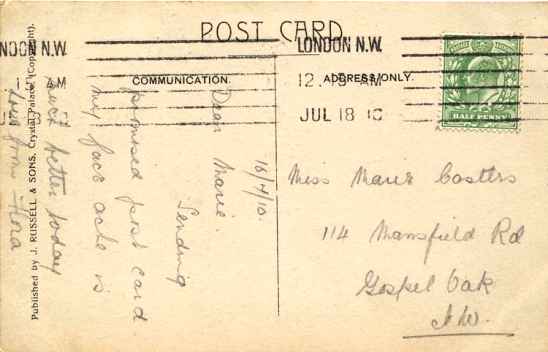 POST CARD
COMMUNICATION.
ADDRESS ONLY.
LONDON N.W.
12.15 AM
JUL 18 10
NDON N.W.
AM
HALF PENNY
Published by J. RUSSELL & SONS, Crystal Palace. (Copyright).
18/7/10.
Dear Marie.
Sending
promised post card.
my face ache is
much better today
love from Flora
Miss Marie Casters
114 Mansfield Rd
Gospel Oak
N.W.